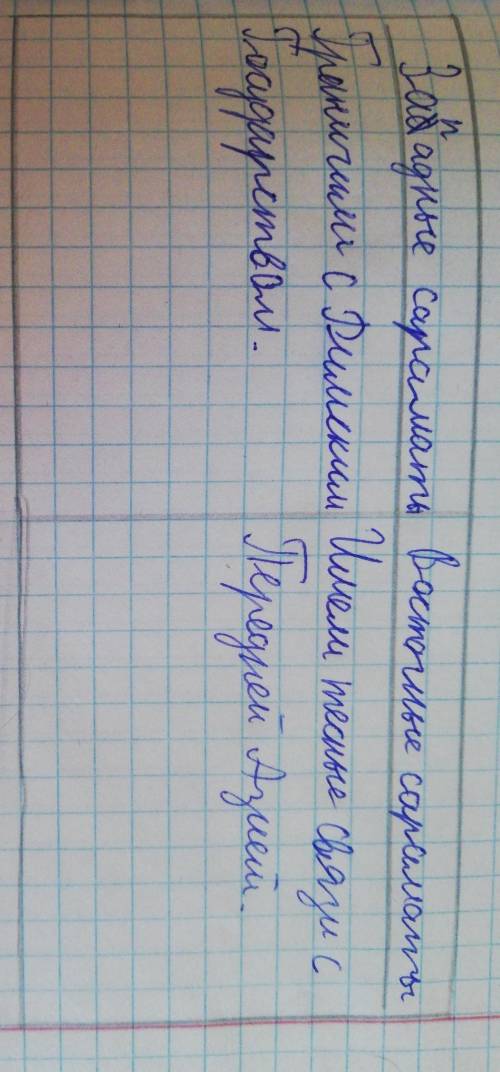 Западные сараматы
Граничили с Римским
Государством.
Восточные сараматы
Имели тесные связи с
Передней Азией.